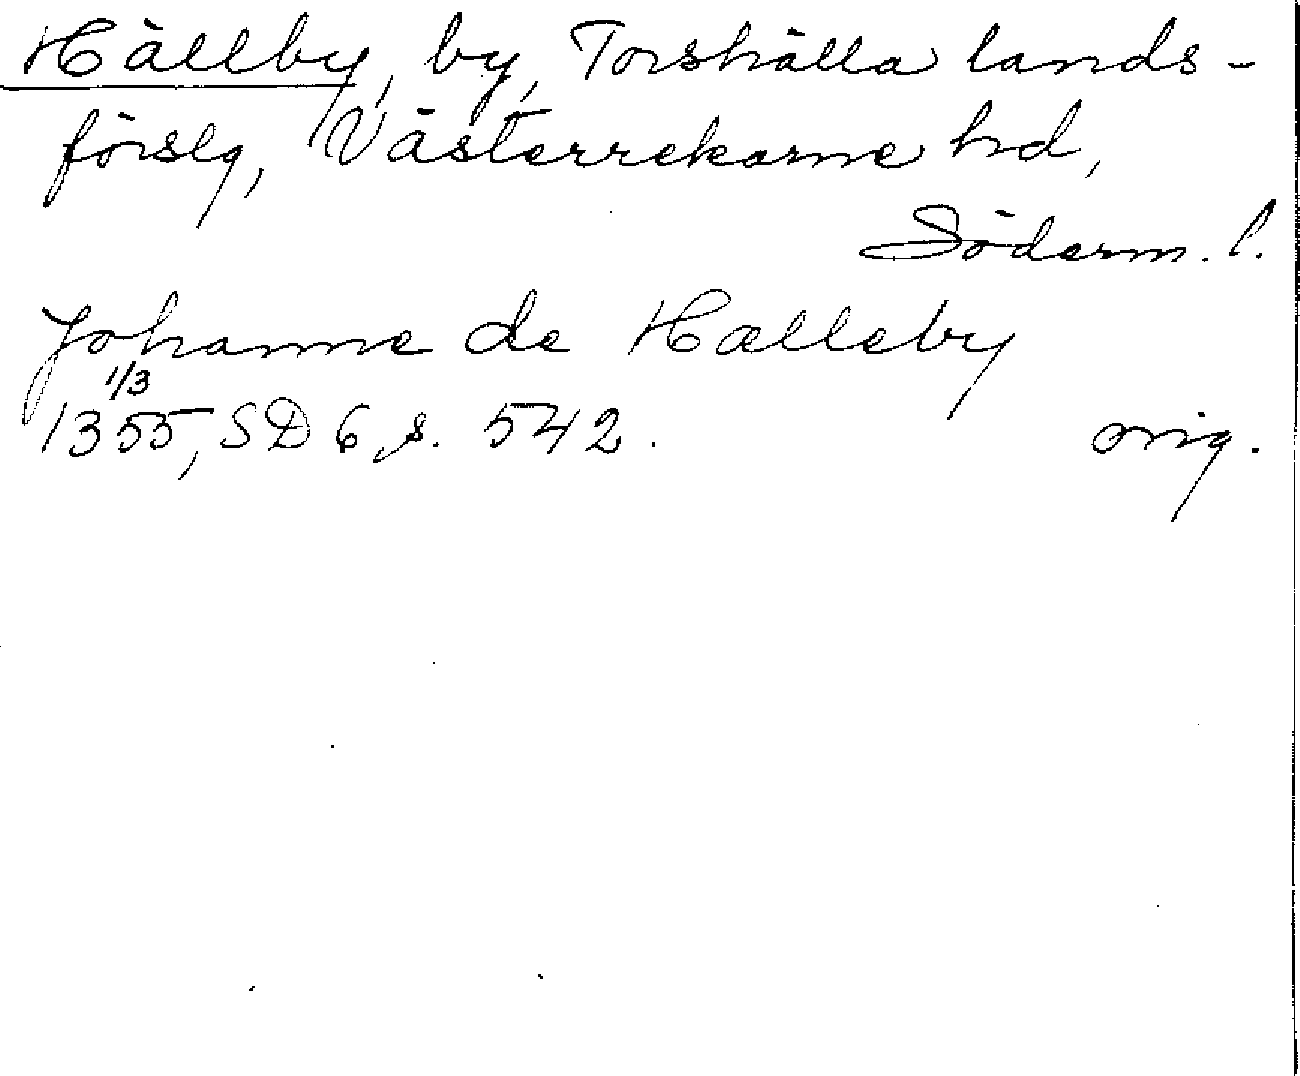 Hällby, by, Torshälla lands-
förslg, Västerrekarne hd,
Söderm. l.
Johanne de Hælleby
1/3
1355, SD 6, s. 542. orig.